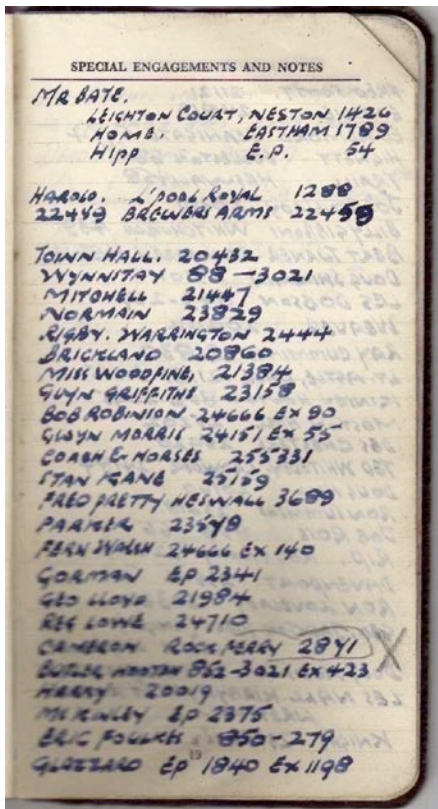 SPECIAL ENGAGEMENTS AND NOTES
MR BATE.
LEIGHTON COURT, NESTON 1426
HOME. EASTHAM 1789
HIPP E.P. 54
HAROLD. L'POOL ROYAL 1288
22449 BREWERS ARMS 22459
TOWN HALL 20432
WYNNSTAY 88-3021
MITCHELL 21447
NORMAIN 23829
RIGBY. WARRINGTON 2444
BRICKLAND 20860
MISS WOODFINE, 21384
GWYN GRIFFITHS 23158
BOB ROBINSON 24666 EX 90
GLWYN MORRIS 24151 EX 55
COACH & HORSES 255331
STAN KANE 25159
FRED PRETTY HESWALL 3689
PARKER 23548
FERN WALSH 24666 EX 140
GORMAN EP 2341
GEO LLOYD 21984
REG LOWE 24710
CAMERON ROCK FERRY 2841 X
BUTLER HOOTON 852-3021 EX 423
HARRY 20019
MCKINLEY EP 2375
ERIC FOULKES 850-279
19
GLAZZARD EP 1840 EX 1198